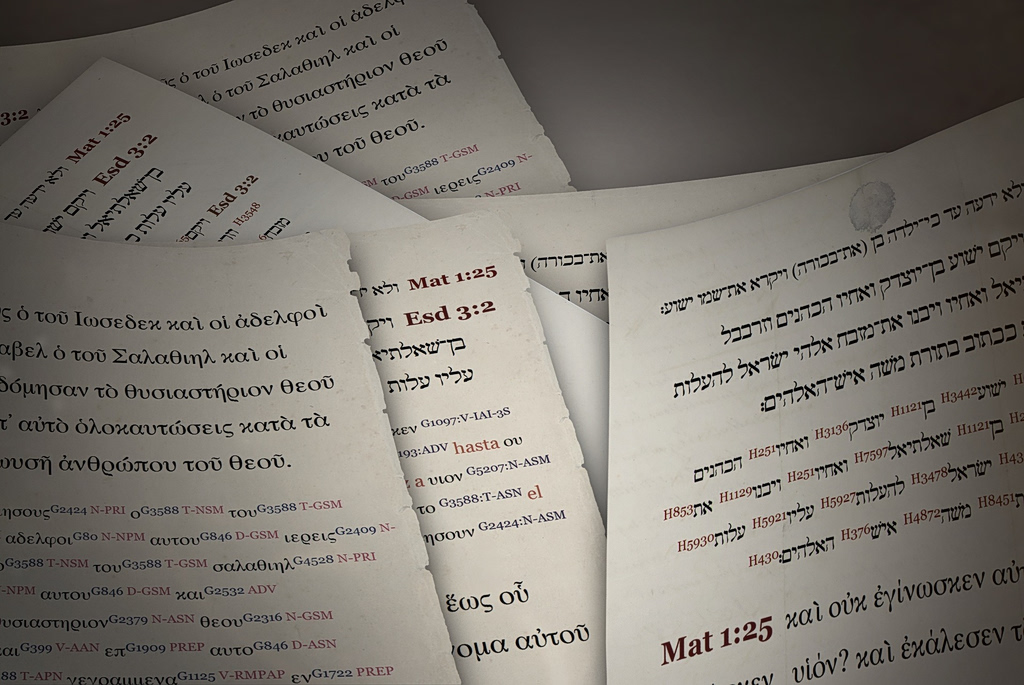 ς ὁ τοῦ Ιωσεδεκ καὶ οἱ ἀδελφ
ὁ τοῦ Σαλαθιηλ καὶ οἱ
τὸ θυσιαστήριον θεοῦ
καυτώσεις κατὰ τὰ
υ τοῦ θεοῦ.
SM τουG3588 T-GSM
-GSM ιερειςG2409 N-
N-PRI
3:2
Mat 1:25 ולא ידעה עד
Esd 3:2 ויקם ישו
בן־שאלתיאל ו
עליו עלות כ
Esd 3:2
H3548
את־בכורה)
אחיו ה
ς ὁ τοῦ Ιωσεδεκ καὶ οἱ ἀδελφοὶ
αβελ ὁ τοῦ Σαλαθιηλ καὶ οἱ
δόμησαν τὸ θυσιαστήριον θεοῦ
τ᾽ αὐτὸ ὁλοκαυτώσεις κατὰ τὰ
ωυσῆ ἀνθρώπου τοῦ θεοῦ.
ησουςG2424 N-PRI οG3588 T-NSM τουG3588 T-GSM
αδελφοιG80 N-NPM αυτουG846 D-GSM ιερειςG2409 N-
οG3588 T-NSM τουG3588 T-GSM σαλαθιηλG4528 N-PRI
-NPM αυτουG846 D-GSM καιG2532 ADV
θυσιαστηριονG2379 N-ASN θεουG2316 N-GSM
αιG399 V-AAN επG1909 PREP αυτοG846 D-ASN
88 T-APN γεγραμμεναG1125 V-RMPAP ενG1722 PREP
Mat 1:25 ולא יד
Esd 3:2 ויק
בן־שאלתיא
עליו עלות
κεν G1097:V-IAI-3S
193:ADV hasta ου
z a υιον G5207:N-ASM
το G3588:T-ASN el
ησουν G2424:N-ASM
ἕως οὗ
νομα αὐτοῦ
ולא ידעה עד כי־ילדה בן (את־בכורה) ויקרא את־שמו ישוע׃
ויקם ישוע בן־יוצדק ואחיו הכהנים וזרבבל
יאל ואחיו ויבנו את־מזבח אלהי ישראל להעלות
ככתוב בתורת משה איש־האלהים׃
ישועH3442 בןH1121 יוצדקH3136 ואחיוH251 הכהנים
בןH1121 שאלתיאלH7597 ואחיוH251 ויבנוH1129 אתH853
H43 ישראלH3478 להעלותH5927 עליוH5921 עלותH5930
H8451 משהH4872 אישH376 האלהים׃H430
Mat 1:25 καὶ οὐκ ἐγίνωσκεν αὐτ
υἱόν? καὶ ἐκάλεσεν τ